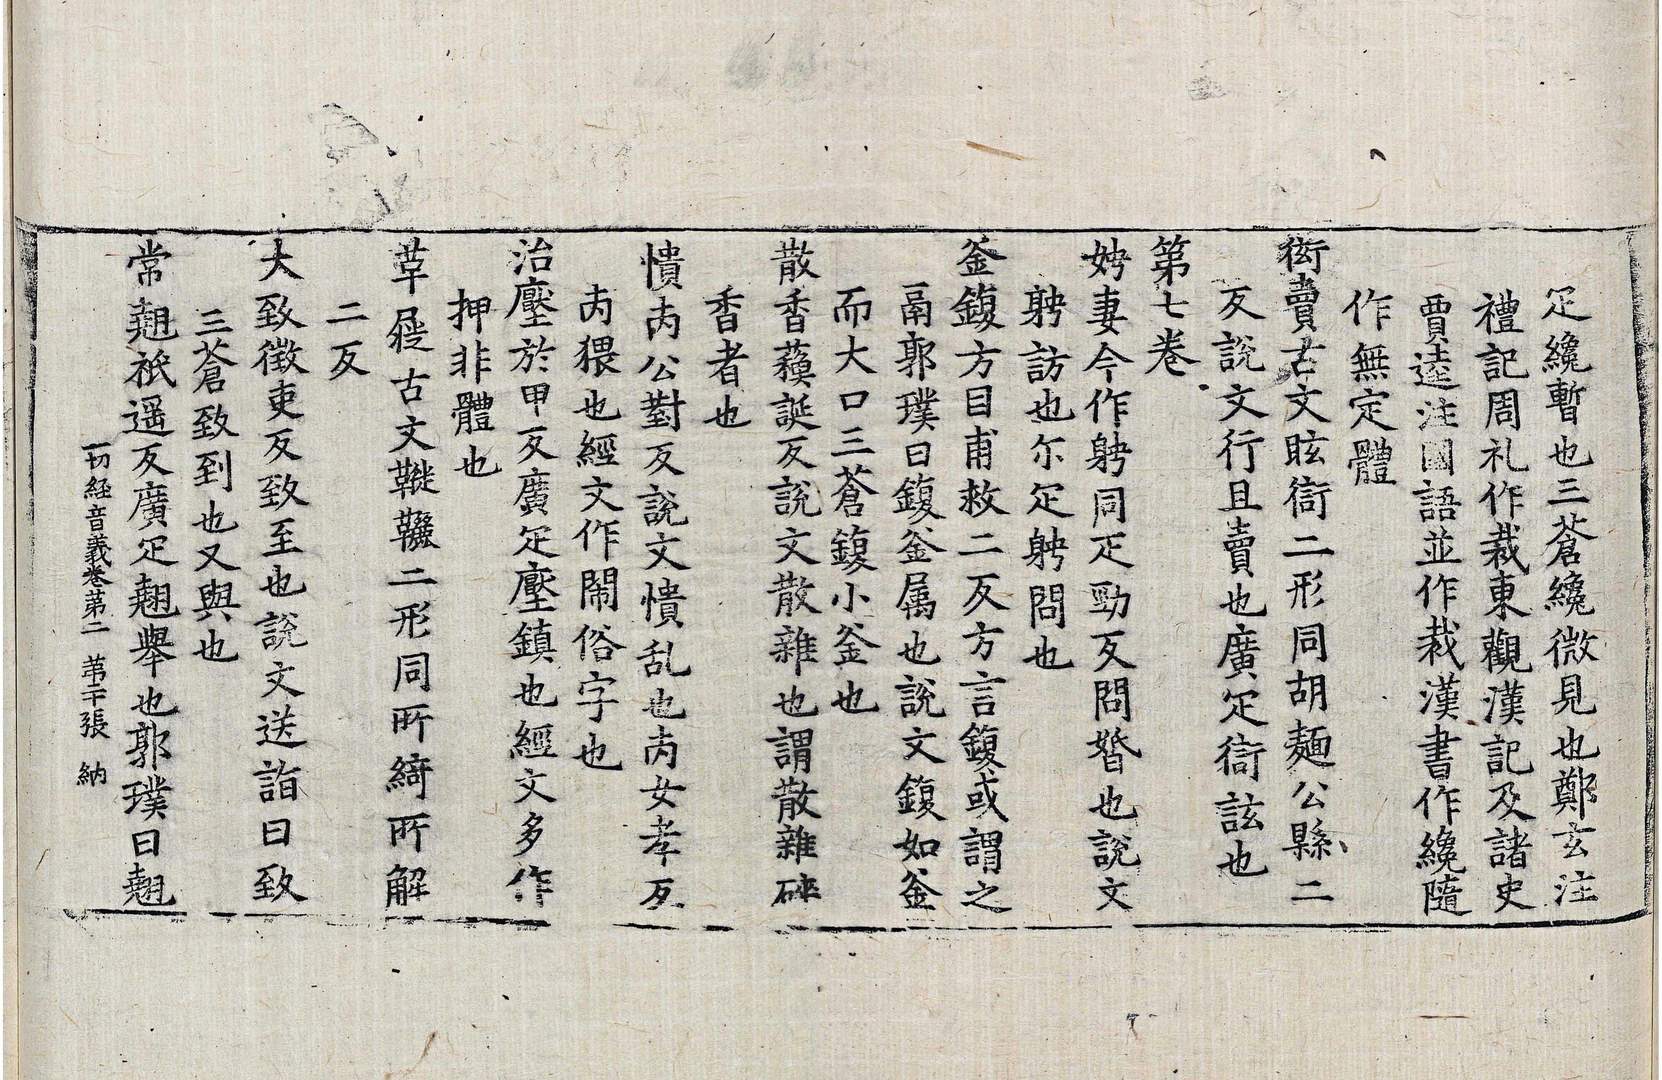 疋纔暫也三蒼纔微見也鄭玄注
禮記周礼作裁東觀漢記及諸史
賈逵注國語並作裁漢書作纔隨
作無定體
衒賣古文眩衒二形同胡麺公縣二
反說文行且賣也廣疋衒詃也
第七卷
娉妻今作聘同疋勁反問婚也說文
聘訪也尒疋聘問也
釜鍑方目甫救二反方言鍑或謂之
鬲郭璞曰鍑釜属也說文鍑如釜
而大口三蒼鍑小釜也
散香䕯誕反說文散雜也謂散雜碎
香者也
憒丙公對反說文憒乱也丙女孝反
丙猥也經文作閙俗字也
治壓於甲反廣疋壓鎮也經文多作
押非體也
草屣古文鞿𩎉二形同所綺所解
二反
大致徵吏反致至也說文送詣曰致
三蒼致到也又與也
常翹祇遥反廣疋翹舉也郭璞曰翹
一切經音義卷第二　苐二十張　納